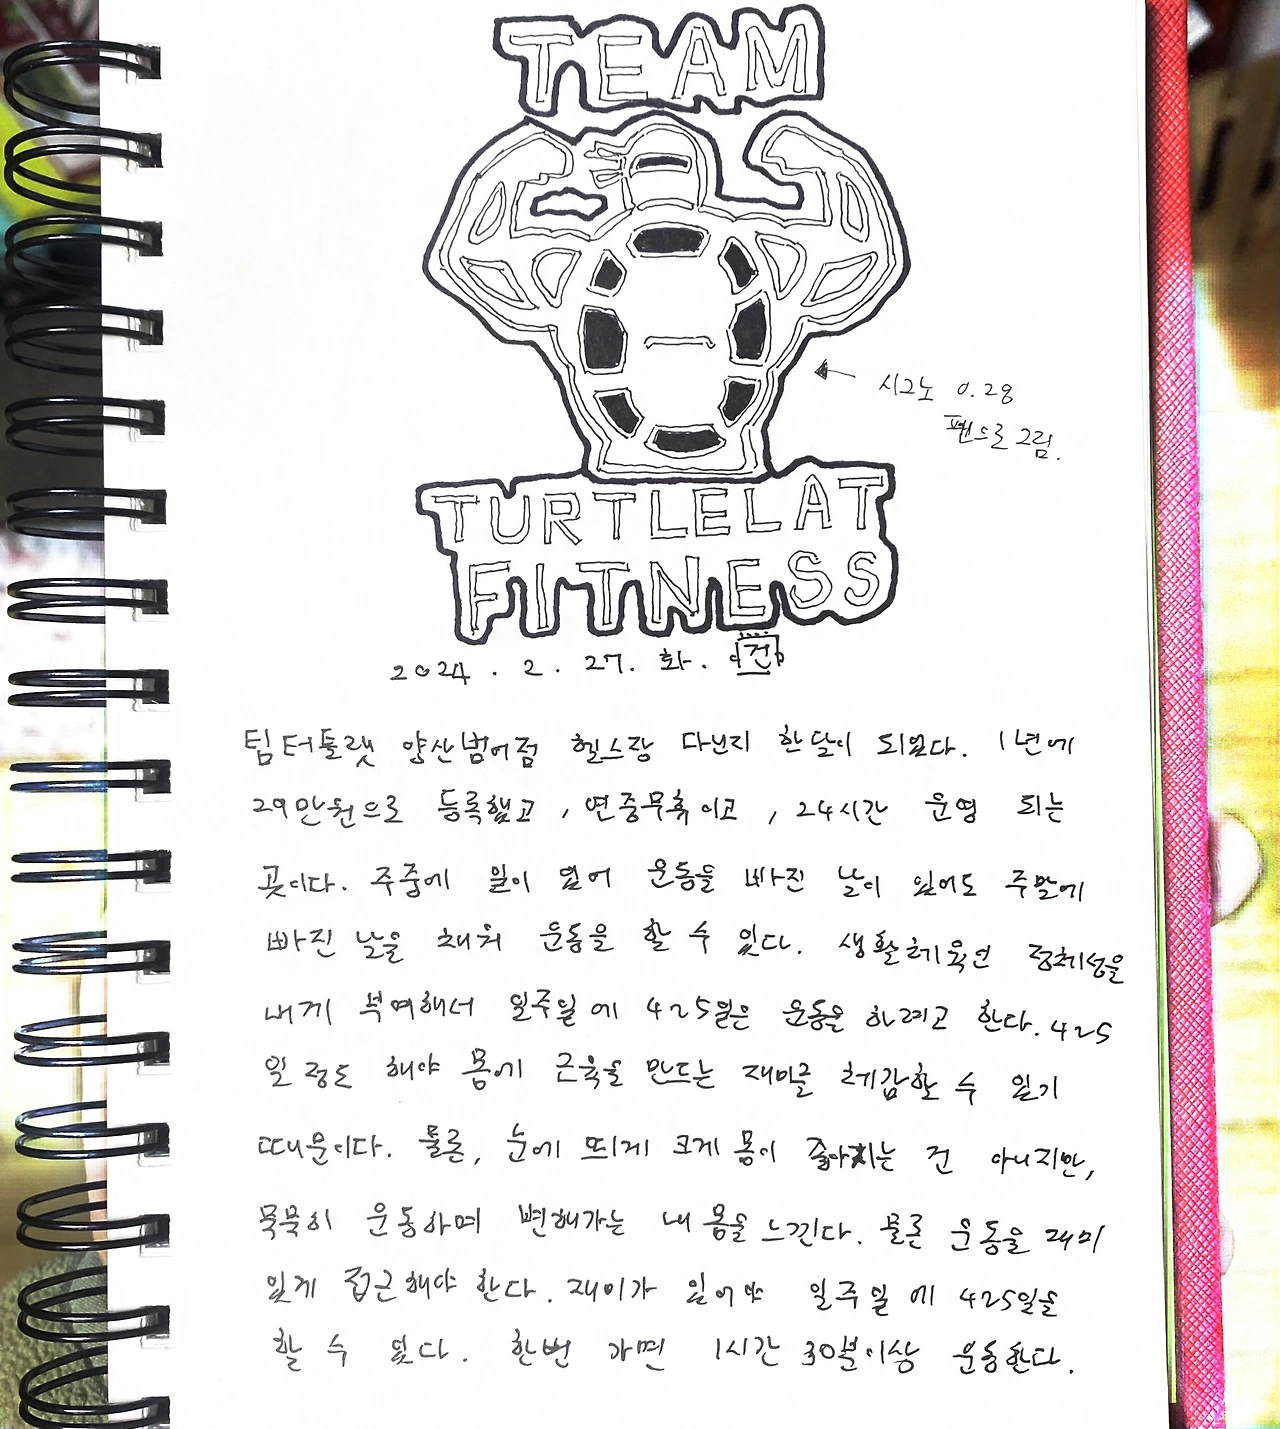 TEAM
시그노 0.28
펜으로 그림.
TURTLELAT
FITNESS
2024. 2. 27. 화. 건
팀터틀랫 양산범어점 헬스장 다닌지 한달이 되었다. 1년에
29만원으로 등록했고, 연중무휴이고, 24시간 운영 되는
곳이다. 주중에 일이 있어 운동을 빠진 날이 있어도 주말에
빠진 날을 채워 운동을 할 수 있다. 생활체육인 정체성을
내게 부여해서 일주일에 4~5일은 운동을 하려고 한다. 4~5
일 정도 해야 몸에 근육을 만드는 재미를 체감할 수 있기
때문이다. 물론, 눈에 띄게 크게 몸이 좋아지는 건 아니지만,
묵묵히 운동하며 변해가는 내 몸을 느낀다. 물론 운동을 재미
있게 접근해야 한다. 재미가 있어야 일주일에 4~5일을
할 수 있다. 한번 가면 1시간 30분이상 운동한다.